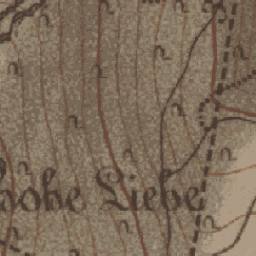 hohe Liebe